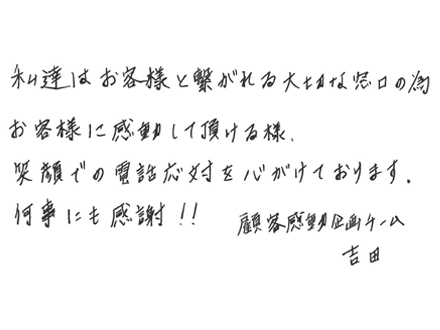 私達はお客様と繋がれる大切な窓口の為
お客様に感動して頂ける様、
笑顔での電話応対を心がけております。
何事にも感謝!!
顧客感動企画チーム
吉田